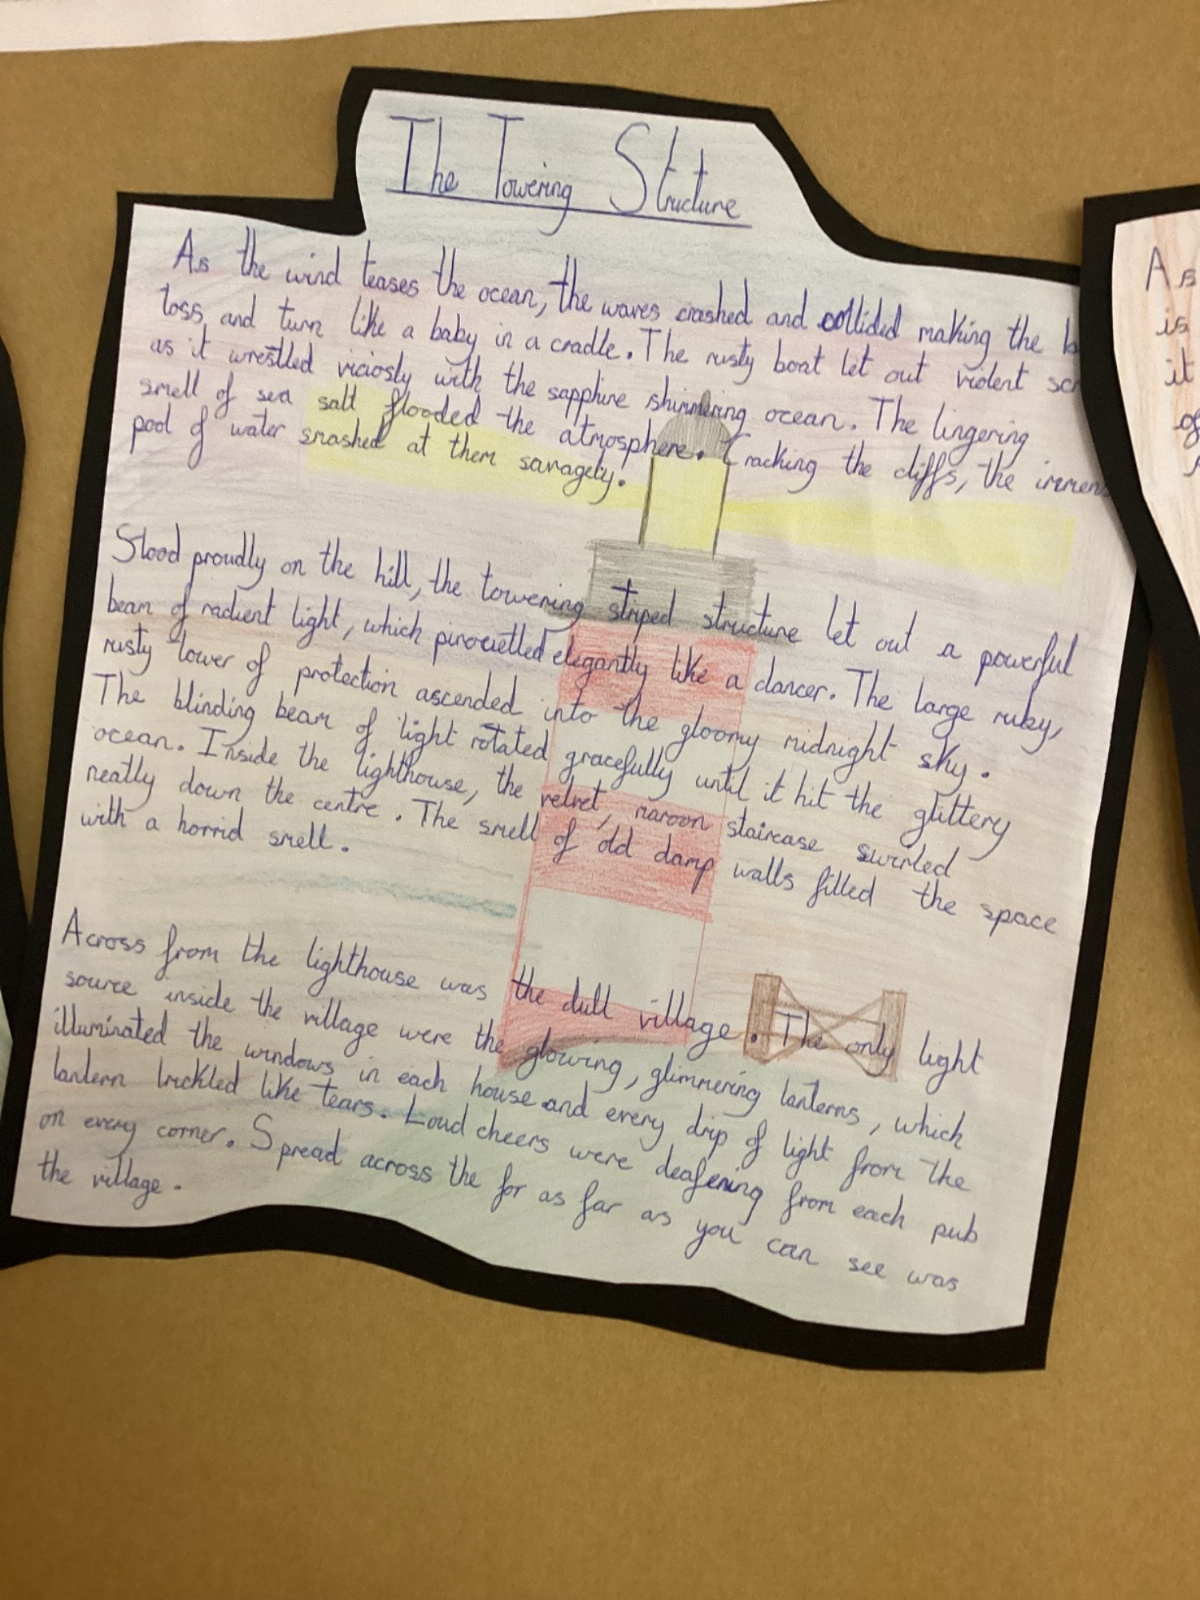 The Towering Structure
As the wind teases the ocean, the waves crashed and collided making the
toss, and turn like a baby in a cradle. The rusty boat let out violent
as it wrestled viciosly with the sapphire shimmering ocean. The lingering
smell of sea salt flooded the atmosphere. Cracking the cliffs, the immens
pool of water smashed at them savagely.
Stood proudly on the hill, the towering striped structure let out a powerful
beam of radient light, which pirouetted elegantly like a dancer. The large ruby,
rusty tower of protection ascended into the gloomy midnight sky.
The blinding beam of light rotated gracefully until it hit the glittery
ocean. Inside the lighthouse, the velvet, maroon staircase swirled
neatly down the centre. The smell of old damp walls filled the space
with a horrid smell.
Across from the lighthouse was the dull village. The only light
source inside the village were the glowing, glimmering lanterns, which
illuminated the windows in each house and every drip of light from the
lantern trickled like tears. Loud cheers were deafening from each pub
on every corner. Spread across the for as far as you can see was
the village.
As
is
it
of